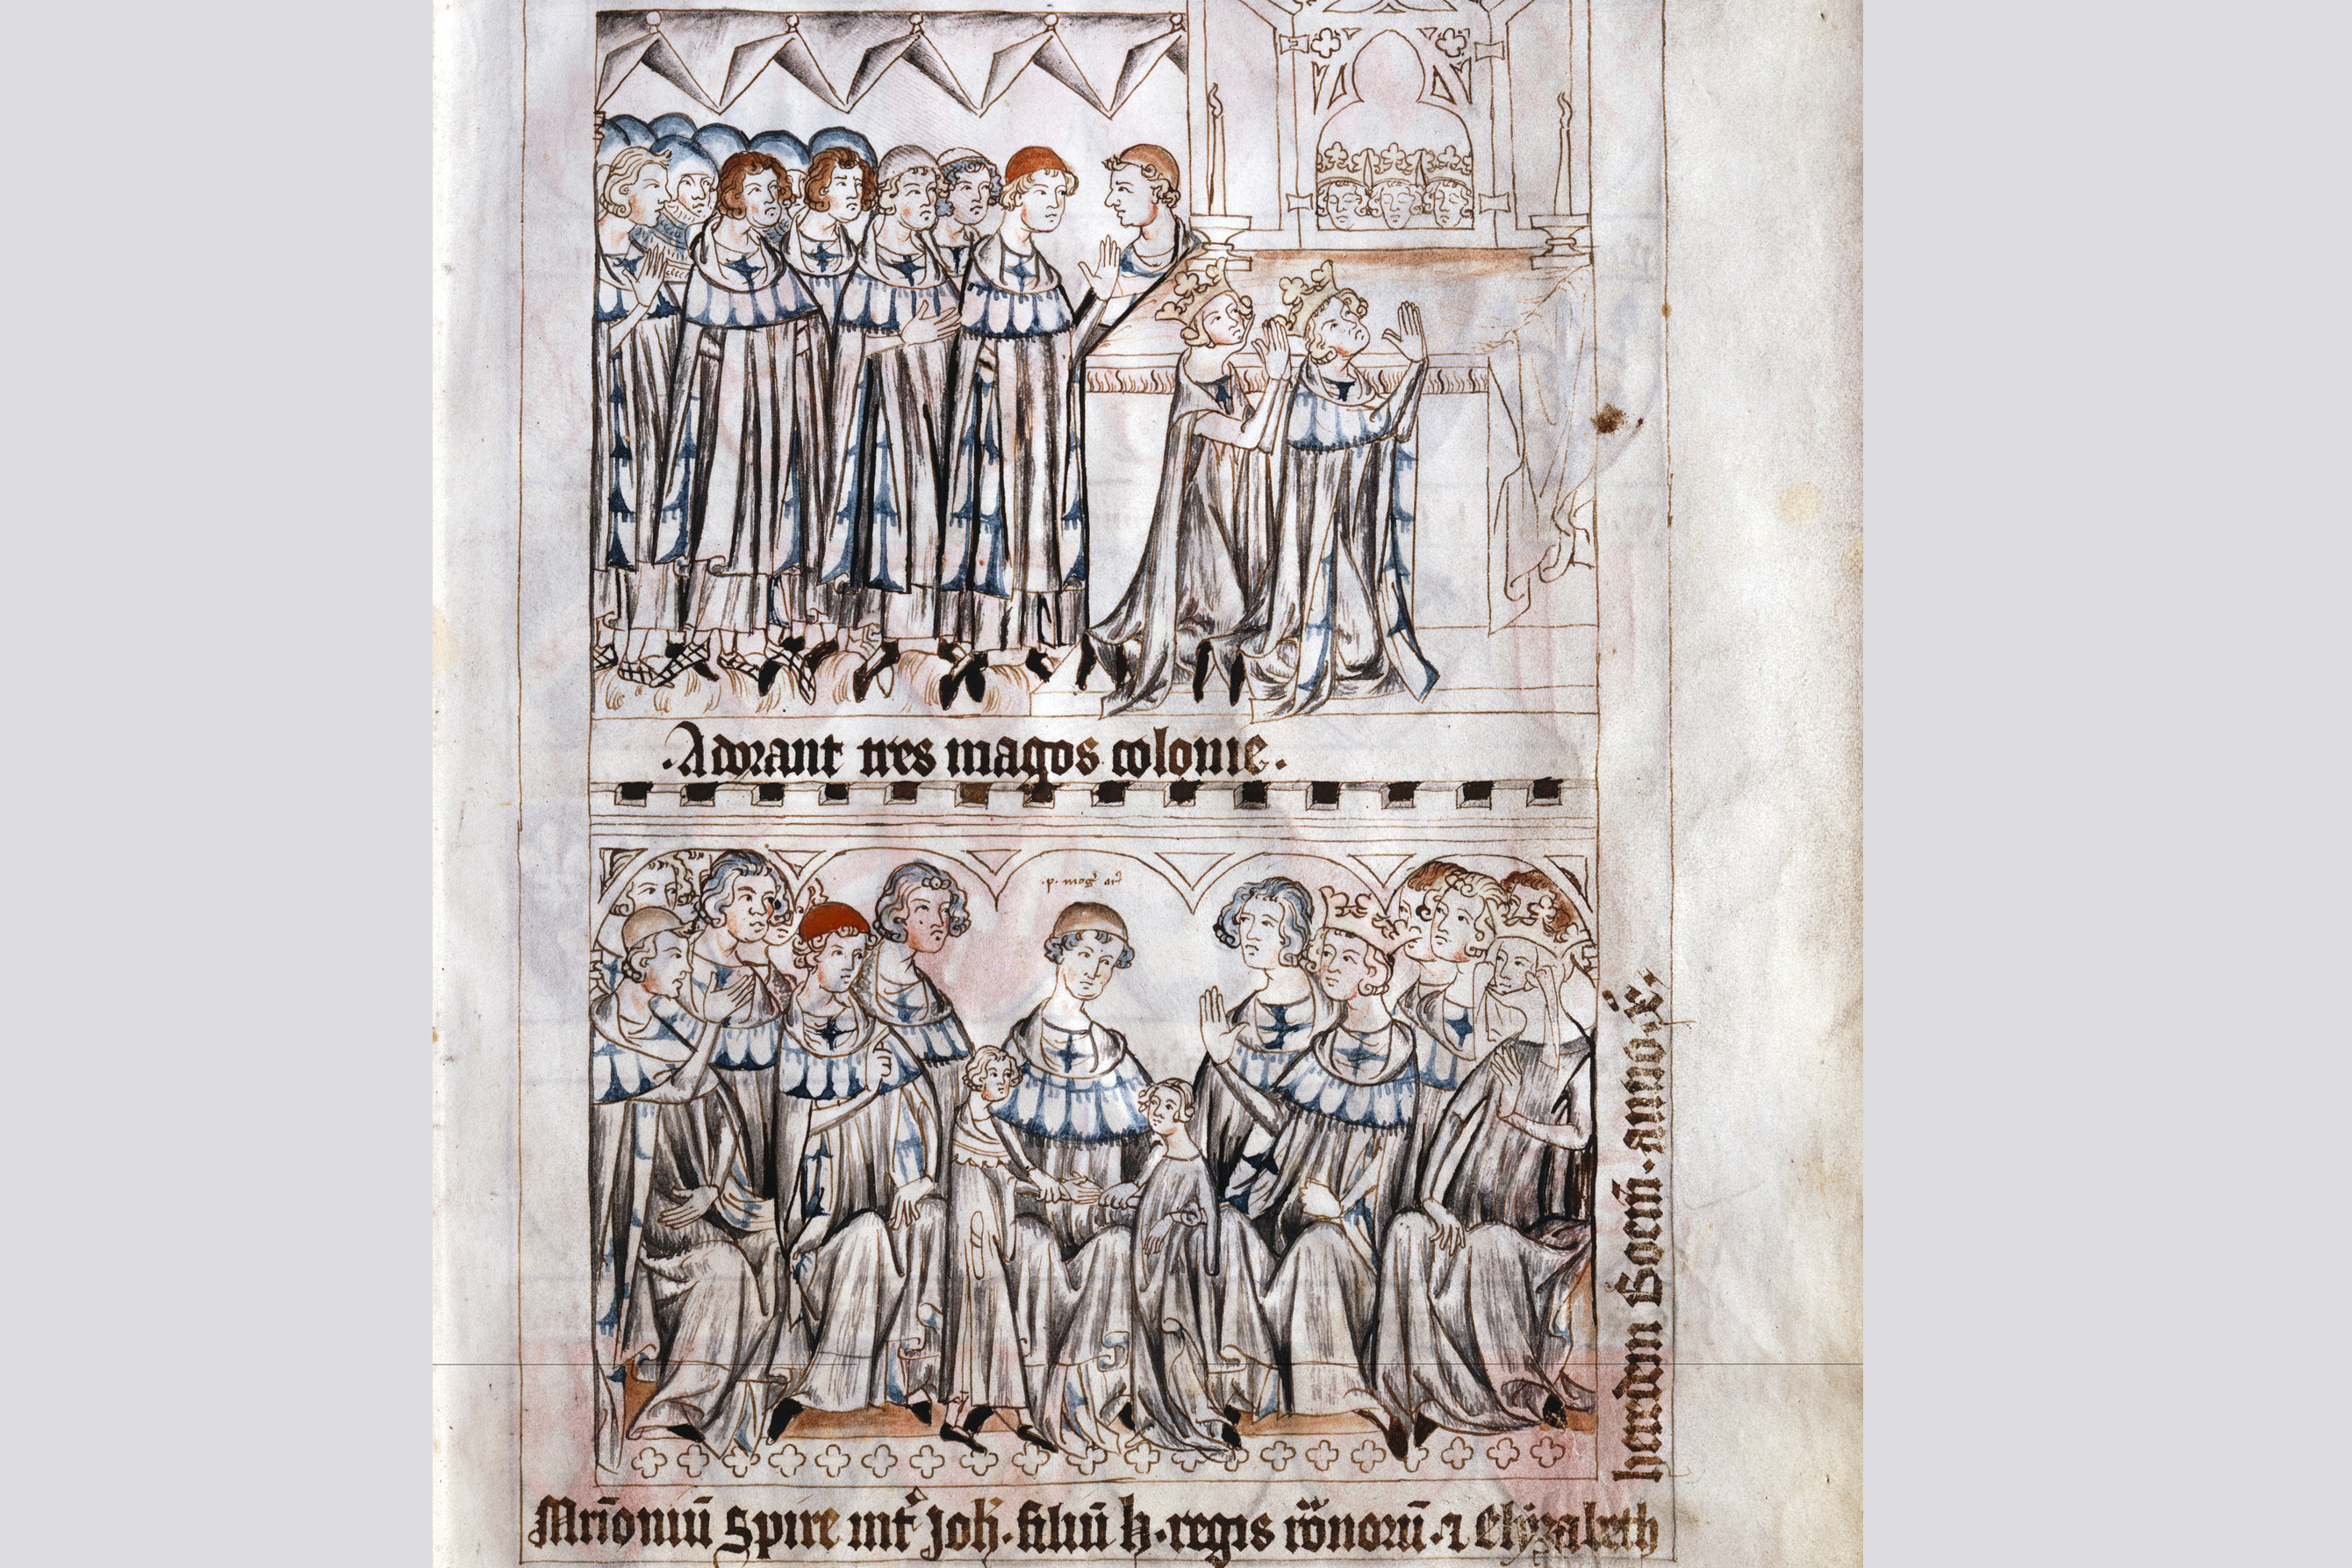 .Adorant tres magos colonie.
.p. mog᷑ ar᷑
Mr̄ioniū Spire int᷑ Joh̄. filiū h̄. regis rōnorū. ⁊ Elyzabeth
heredem Boem̄. anno. ẍ.